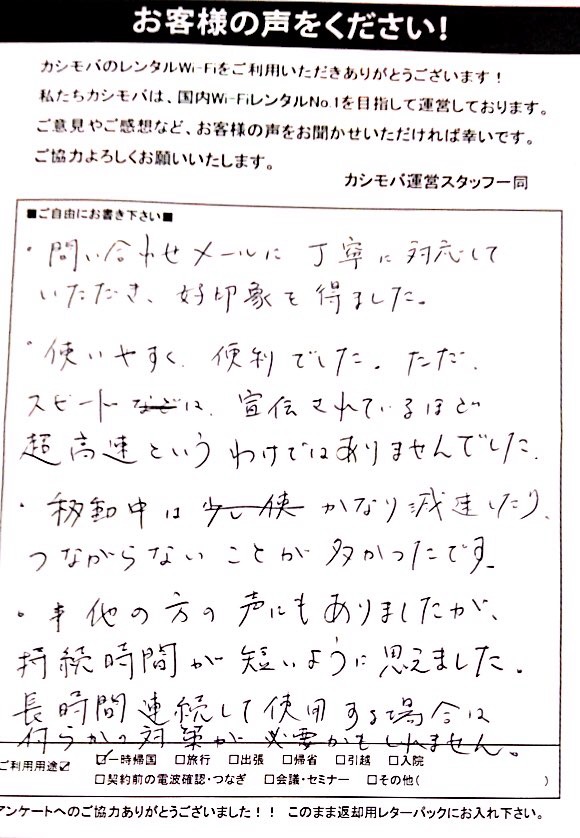 お客様の声をください!
カシモバのレンタルWi-Fiをご利用いただきありがとうございます!
私たちカシモバは、国内Wi-FiレンタルNo.1を目指して運営しております。
ご意見やご感想など、お客様の声をお聞かせいただければ幸いです。
ご協力よろしくお願いいたします。
カシモバ運営スタッフ一同
■ご自由にお書き下さい■
・問い合わせメールに丁寧に対応して
いただき、好印象を得ました。
・使いやすく、便利でした。ただ、
スピードなどは、宣伝されているほど
超高速というわけではありませんでした。
・移動中は少し使かなり減速したり、
つながらないことが多かったです。
・他の方の声にもありましたが、
持続時間が短いように思えました。
長時間連続して使用する場合は
何らかの対策が必要かもしれません。
ご利用用途☑ ☑一時帰国 □旅行 □出張 □帰省 □引越 □入院
□契約前の電波確認・つなぎ □会議・セミナー □その他( )
アンケートへのご協力ありがとうございました!! このまま返却用レターパックにお入れ下さい。